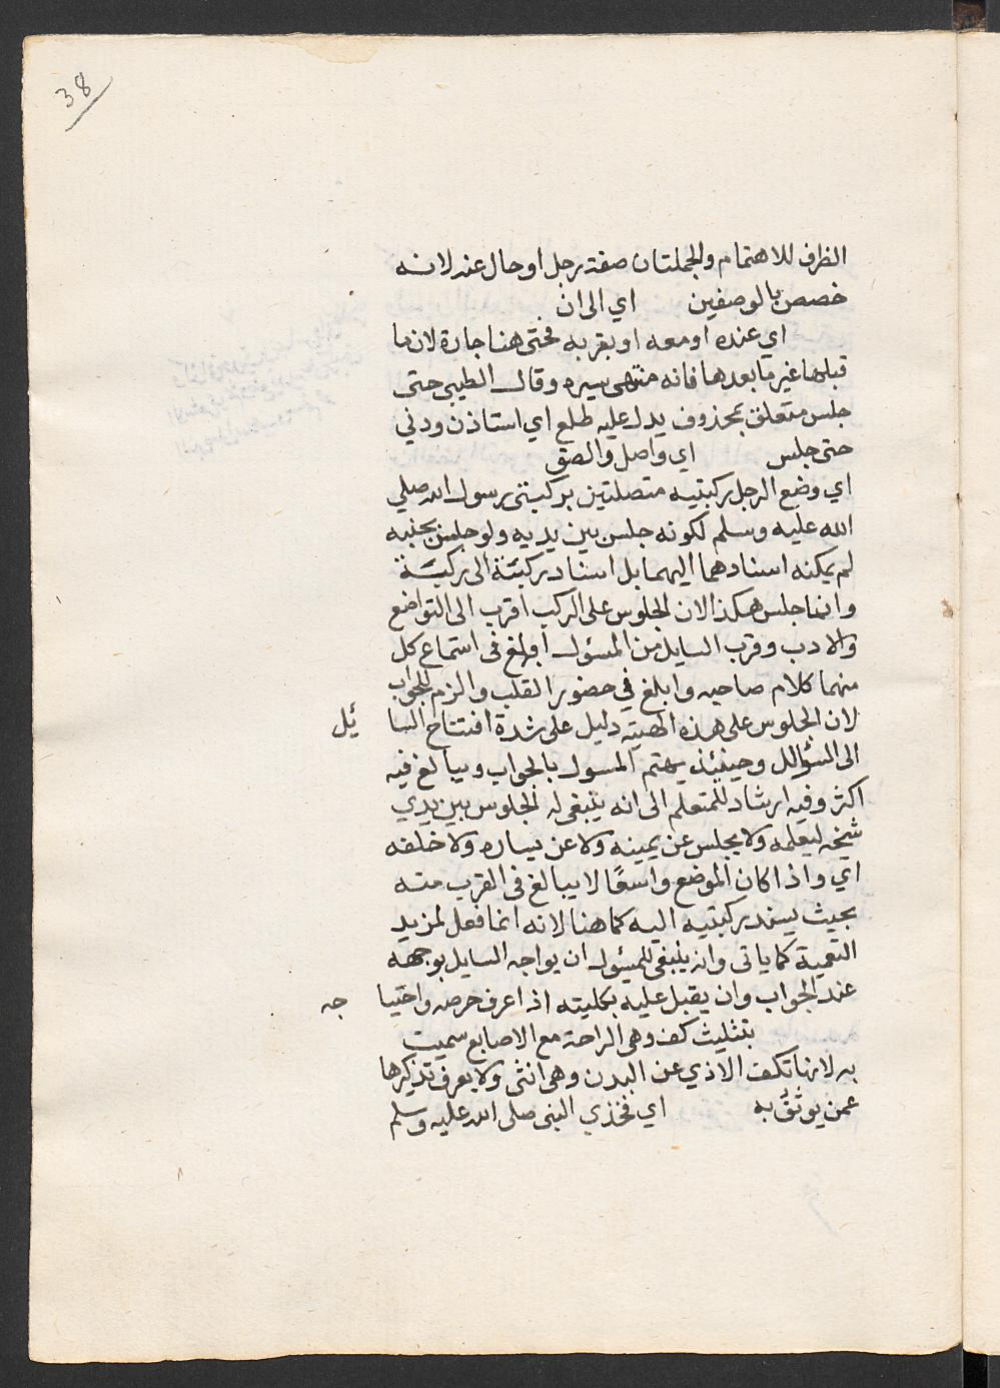 38
الظرف للاهتمام والجملتان صفة رجل او حال عند لانه
خصص بالوصفين اي الى ان
اي عنده او معه او بقربه فحتى هنا جارة لان ما
قبلها غير ما بعدها فانه منتهى سيره وقال الطيبي حتى
جلس متعلق بمحذوف يدل عليه طلع اي استاذن ودني
حتى جلس اي واصل والصق
اي وضع الرجل ركبتيه متصلتين بركبتي رسول الله صلي
الله عليه وسلم لكونه جلس بين يديه ولو جلس بجنبه
لم يمكنه اسنادهما اليهما بل اسناد ركبة الى ركبة
وانما جلس هكذا لان الجلوس على الركب اقرب الى التواضع
والادب وقرب السايل من المسئول ابلغ في استماع كل
منهما كلام صاحبه وابلغ في حضور القلب والزم للجواب
لان الجلوس على هذه الهيئة دليل على شدة السائيل
الى السؤالل وحينئذ يهتم المسول بالجواب ويبالغ فيه
اكثر وفيه ارشاد للمتعلم الى انه ينبغي له الجلوس بين يدي
شيخه ليعلمه ولا يجلس عن يمينه ولا عن يساره ولا خلفه
اي واذا كان الموضع واسعًا لا يبالغ في القرب منه
بحيث يسند ركبتيه اليه كما هنا لانه انما فعل لمزيد
التعمية كما ياتى وانه ينبغي للمسئول ان يواجه السايل بوجهه
عند الجواب وان يقبل عليه بكليته اذا عرف حرصه واحتيا جه
بتثليث كف وهي الراحة مع الاصابع سميت
به لانها تكف الاذي عن البدن وهي انثى ولا يعرف تذكرها
عمن يوثق به اي فخذي النبي صلى الله عليه وسلم